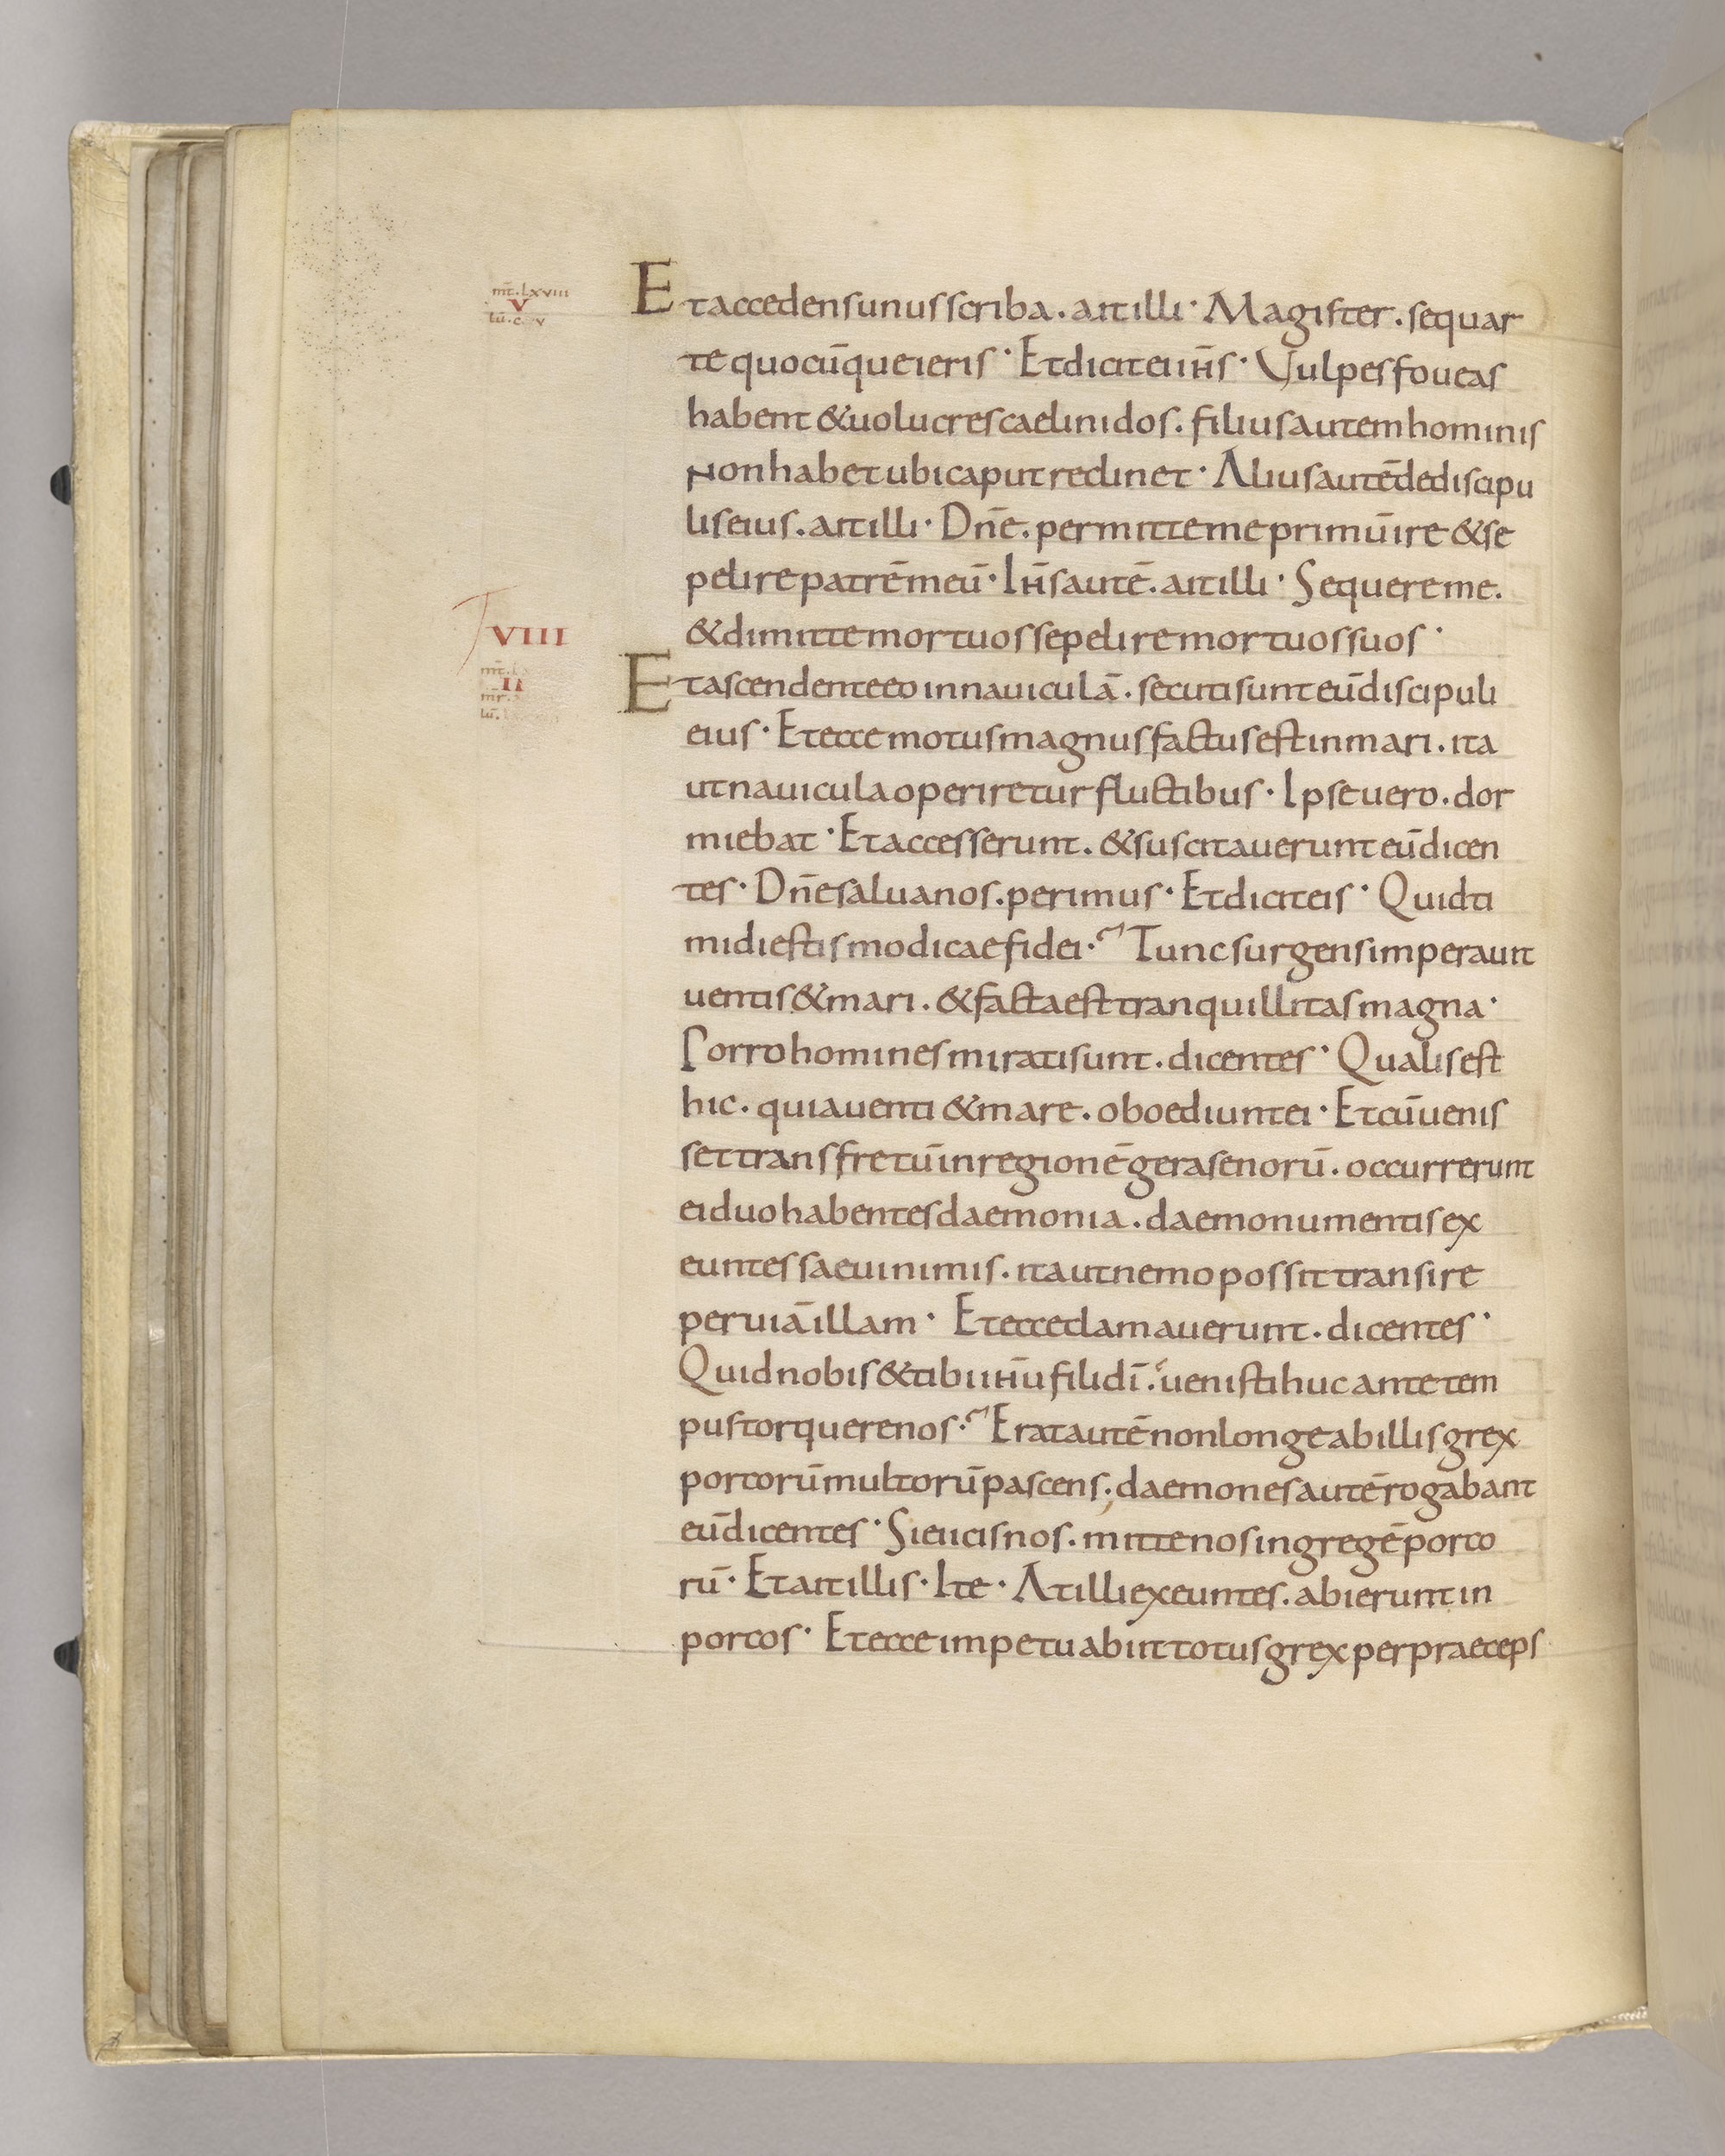 mt̄.lxviii
V
lū.c.v
Et accedens unus scriba. ait illi· Magister. sequar
te quocūque ieris· Et dicit ei iħs· Vulpes foueas
habent & uolucres caeli nidos. filius autem hominis
Non habet ubi caput reclinet· Alius autē de discipu
lis eius. ait illi· Dn̄e. permitte me primū ire & se
pelire patrē meū· Iħs autē. ait illi· Sequere me.
& dimitte mortuos sepelire mortuos suos·
VIII
mt̄.lx
II
mr̄.
lū.
Et ascendente eo in nauiculā. secuti sunt eū discipuli
eius· Et ecce motus magnus factus est in mari. ita
ut nauicula operiretur fluctibus· Ipse uero. dor
miebat· Et accesserunt. & suscitauerunt eū dicen
tes· Dn̄e salua nos. perimus· Et dicit eis· Quid ti
midi estis modicae fidei· Tunc surgens imperauit
uentis & mari. & facta est tranquillitas magna·
Porro homines mirati sunt. dicentes· Qualis est
hic. quia uenti & mare. oboediunt ei· Et cū uenis
set trans fretū in regionē gerasenorū. occurrerunt
ei duo habentes daemonia. dae monumentis ex
euntes saeui nimis. ita ut nemo possit transire
per uiā illam· Et ecce clamauerunt. dicentes·
Quid nobis & tibi iħu fili dī. uenisti huc ante tem
pus torquere nos· Erat autē non longe ab illis grex
porcorū multorū pascens; daemones autē rogabant
eū dicentes· Si eiicis nos. mitte nos in gregē porco
rū· Et ait illis· Ite· At illi exeuntes. abierunt in
porcos· Et ecce impetu abiit totus grex per praeceps